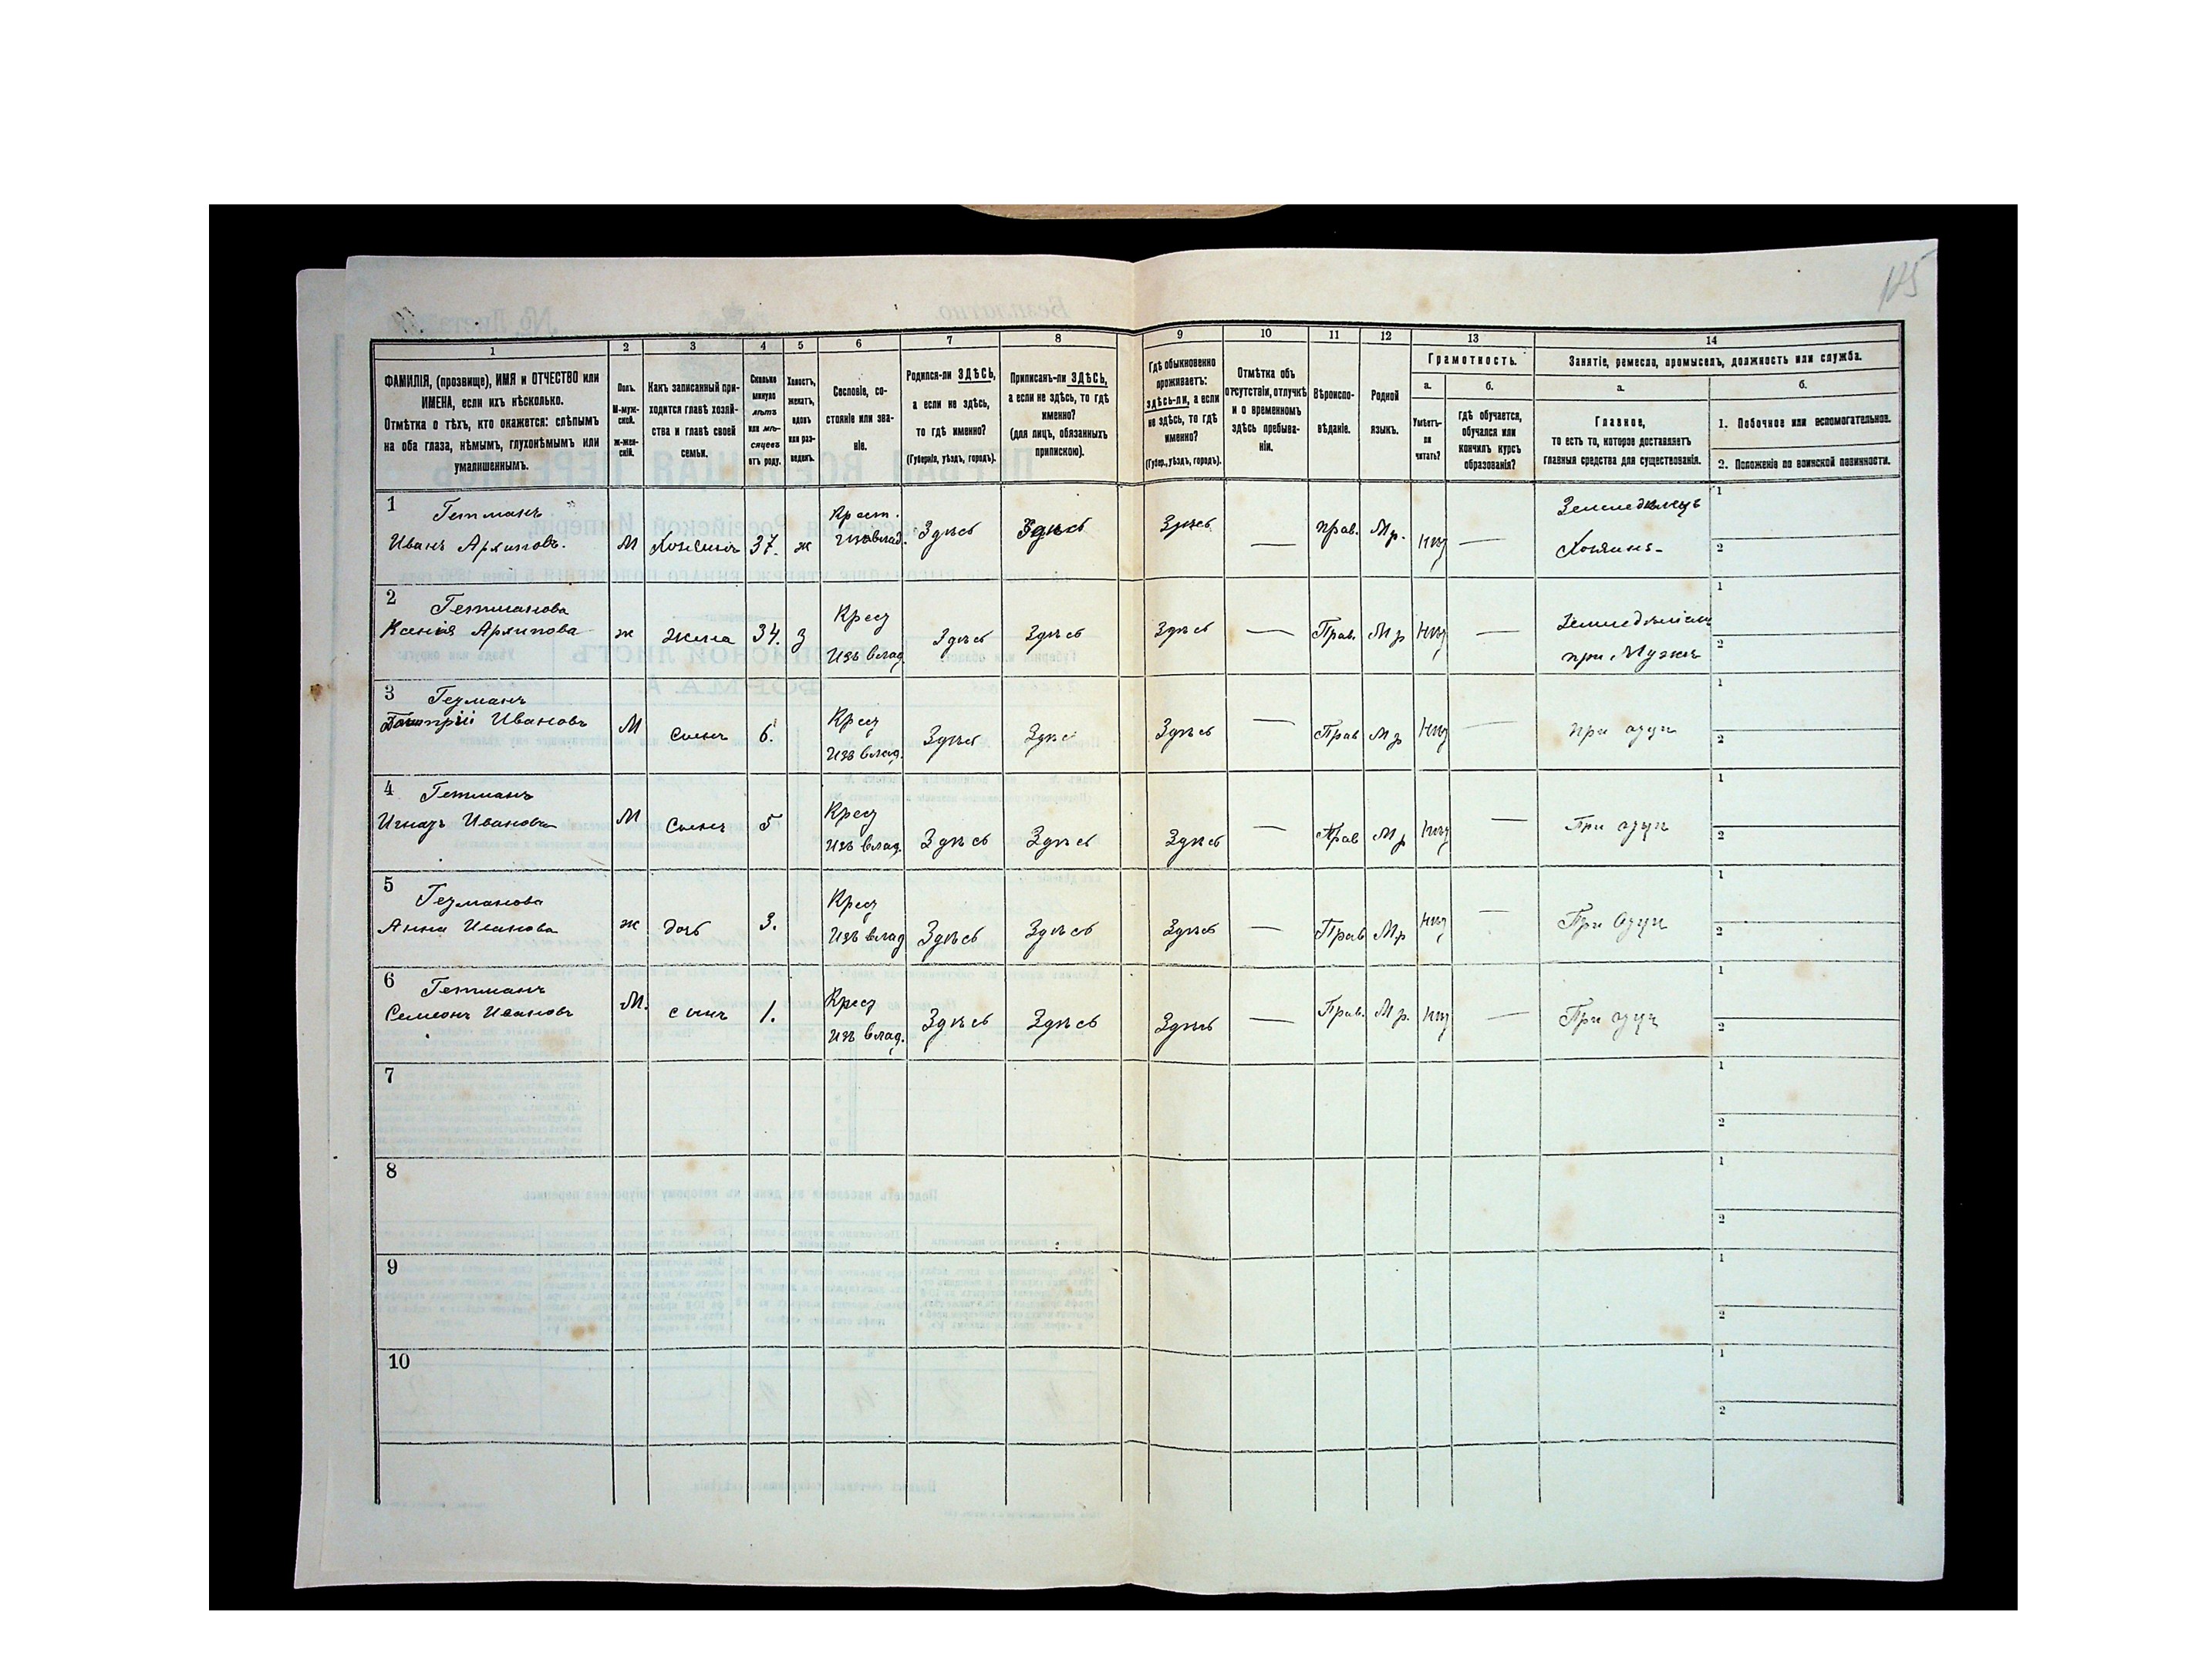 125
1
2
3
4
5
6
7
8
9
10
11
12
13
14
ФАМИЛІЯ, (прозвище), ИМЯ и ОТЧЕСТВО или
ИМЕНА, если ихъ нѣсколько.
Отмѣтка о тѣхъ, кто окажется: слѣпымъ
на оба глаза, нѣмымъ, глухонѣмымъ или
умалишеннымъ.
Полъ.
М-муж-
ской.
ж-жен-
скій.
Какъ записанный при-
ходится главѣ хозяй-
ства и главѣ своей
семьи.
Сколько
минуло
лѣтъ
или мѣ-
сяцевъ
отъ роду.
Холостъ,
женатъ,
вдовъ
или раз-
веденъ.
Сословіе, со-
стояніе или зва-
ніе.
Родился-ли ЗДѢСЬ,
а если не здѣсь,
то гдѣ именно?
(Губернія, уѣздъ, городъ).
Приписанъ-ли ЗДѢСЬ,
а если не здѣсь, то гдѣ
именно?
(для лицъ, обязанныхъ
припискою).
Гдѣ обыкновенно
проживаетъ:
здѣсь-ли, а если
не здѣсь, то гдѣ
именно?
(Губер., уѣздъ, городъ).
Отмѣтка объ
отсутствіи, отлучкѣ
и о временномъ
здѣсь пребыва-
ніи.
Вѣроиспо-
вѣданіе.
Родной
языкъ.
Грамотность.
а.
Умѣетъ-
ли
читать?
б.
Гдѣ обучается,
обучался или
кончилъ курсъ
образованія?
Занятіе, ремесло, промыселъ, должность или служба.
а.
Главное,
то есть то, которое доставляетъ
главныя средства для существованія.
б.
1. Побочное или вспомогательное.
2. Положеніе по воинской повинности.
1 Гетманъ
Иванъ Архиповъ.
М
Хозяинъ
37.
ж
Крест.
изъ влад.
Здѣсь
Здѣсь
Здѣсь
—
Прав.
Мр.
нѣт
—
Земледѣлецъ
Хозяинъ
1
2
2 Гетманова
Ксенія Архипова
ж
жена
34.
з
Крест
Изъ влад.
Здѣсь
Здѣсь
Здѣсь
—
Прав.
Мр
нѣт
—
при Мужѣ
1
2
3 Гетманъ
Дмитрій Ивановъ
М
Сынъ
6.
Крест
Изъ влад.
Здѣсь
Здѣсь
Здѣсь
—
Прав
Мр
нѣт
—
при отцѣ
1
2
4 Гетманъ
Игнатъ Ивановъ
М
Сынъ
5
Крест
Изъ влад.
Здѣсь
Здѣсь
Здѣсь
—
Прав
Мр
нѣт
—
При отцѣ
1
2
5 Гетманова
Анна Иванова
ж
дочь
3.
Крест
Изъ влад
Здѣсь
Здѣсь
Здѣсь
—
Прав
Мр
нѣт
—
При Отцѣ
1
2
6 Гетманъ
Семенъ Ивановъ
М.
сынъ
1.
Крест
Изъ влад.
Здѣсь
Здѣсь
Здѣсь
—
Прав.
Мр.
нѣт
—
При отцѣ
1
2
7
1
2
8
1
2
9
1
2
10
1
2